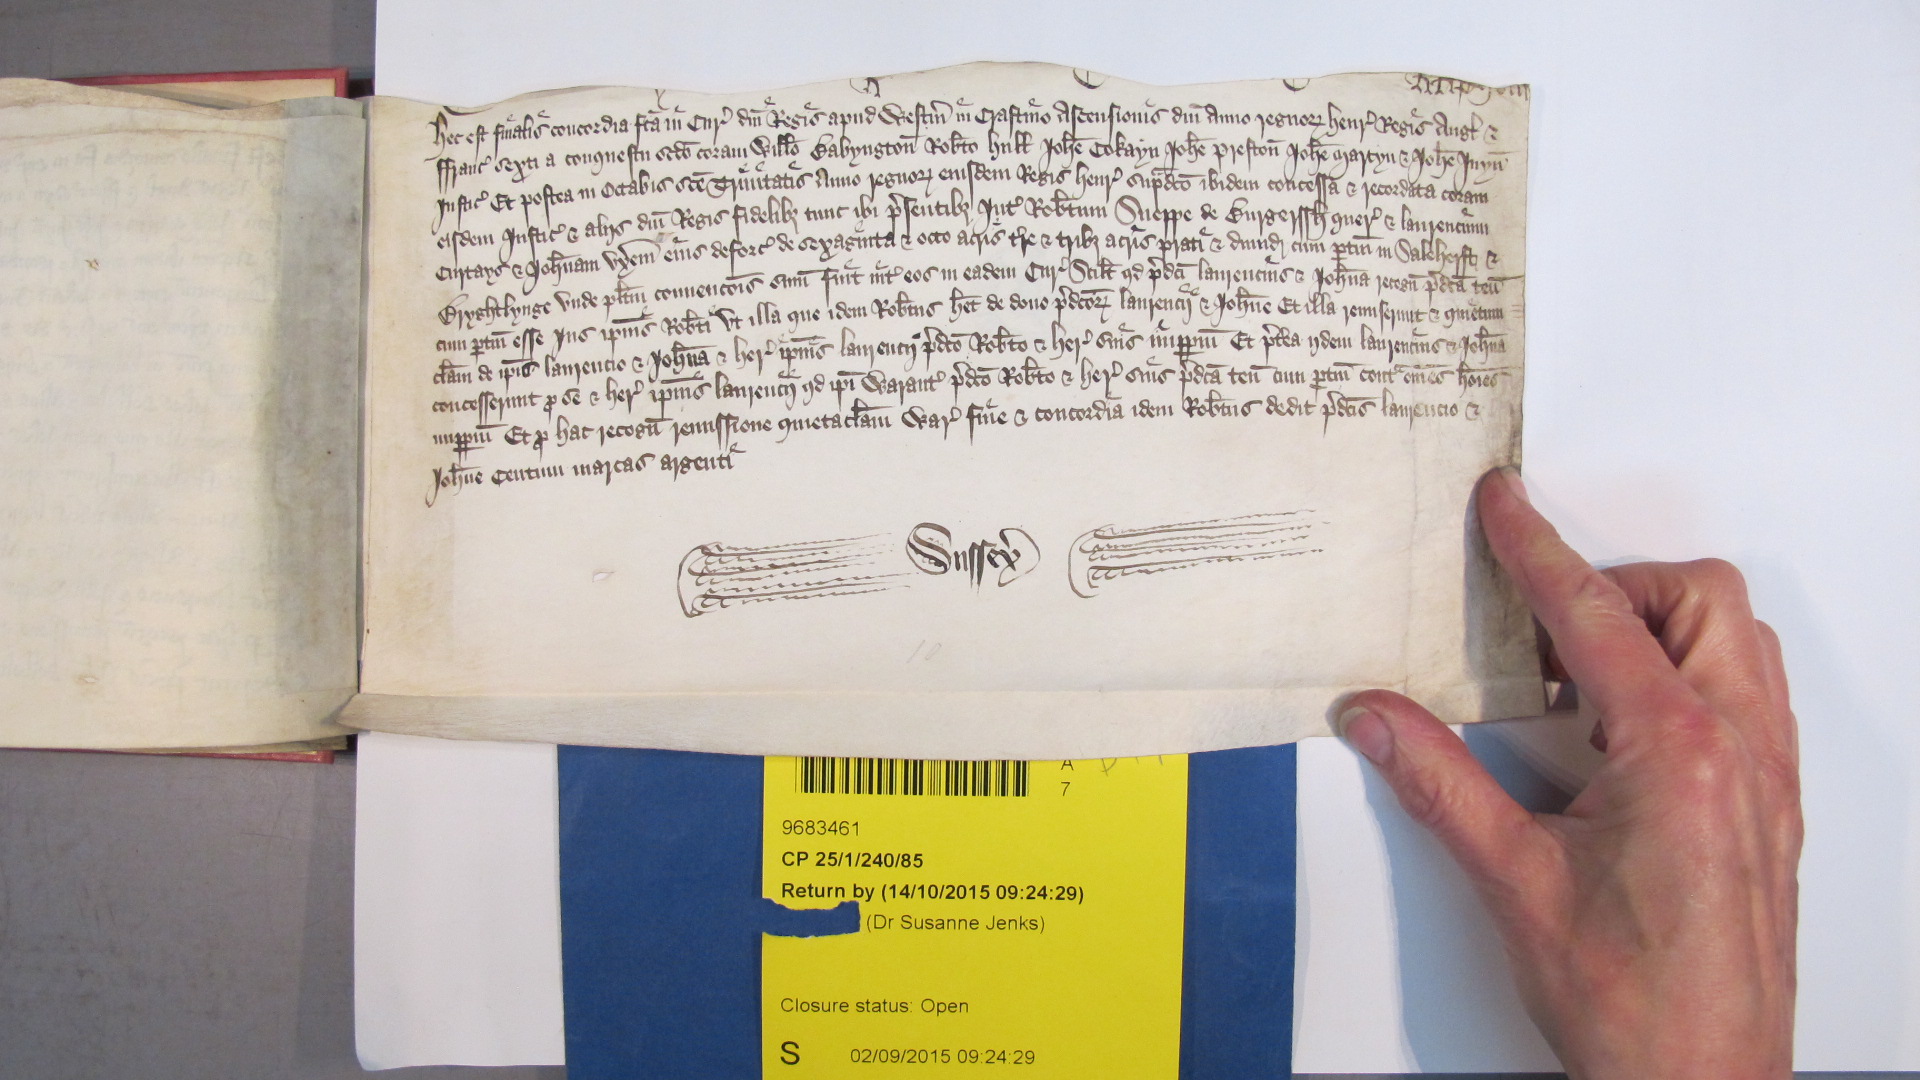 Hec est finalis concordia fc̄a in Cur̉ dn̄i Regis apud Westm̄ in Crastino Ascensionis dn̄i Anno regnoꝝ Henr̉ Regis Angl̉ &
Franc̉ sexti a conquestu scd̄o coram Willo Babyngton̄ Rob̄to Hull Joh̄e Cokayn Joh̄e Preston̄ Joh̄e Martyn & Joh̄e Juyn̄
Justic̉ Et postea in Octabis sc̄e Trinitatis Anno regnoꝝ eiusdem Regis Henr̉ sup̄dc̄o ibidem concessa & recordata coram
eisdem Justic̉ & alijs dn̄i Regis fidelibꝫ tunc ibi p̄sentibꝫ Int̉ Rob̄tum de Burgerssh quer̉ & laurencium
Curtays & Joh̄nam vx̄em eius deforc̉ de sexaginta & octo acris t̄re & tribꝫ acris prati & dimid̉ cum ptin̄ in Saleherst &
Bryghtlynge Vnde pl̄itm̄ conuencōis sum̄ fuit int̉ eos in eadem Cur̉ Scil̉t qd̄ p̄dc̄i laurencius & Joh̄na recogn̄ p̄dc̄a ten̄
cum ptin̄ esse Jus ip̄ius Rob̄ti Vt illa que idem Rob̄tus h̄et de dono p̄dc̄oꝝ laurencij & Joh̄ne Et illa remiserunt & quietum
clām de ip̄is laurencio & Joh̄na & her̉ ip̄ius laurencij p̄dc̄o Rob̄to & her̉ suis inpp̄m Et p̄t̄ea ijdem laurencius & Joh̄na
concesserunt p se & her̉ ip̄ius laurencij qd̄ ip̄i Warant̉ p̄dc̄o Rob̄to & her̉ suis p̄dc̄a ten̄ cum ptin̄ cont̉ om̄es hōies
inpp̄m Et p hac recogn̄ remissione quietaclām War̉ fine & concordia idem Rob̄tus dedit p̄dc̄is laurencio &
Joh̄ne Centum marcas argenti
Sussex̉
10
A
7
9683461
CP 25/1/240/85
Return by (14/10/2015 09:24:29)
(Dr Susanne Jenks)
Closure status: Open
S 02/09/2015 09:24:29